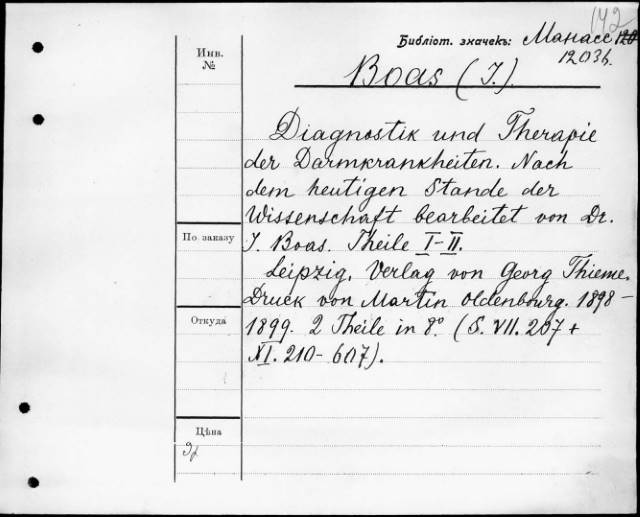 142
Библіот. значекъ: Манасс 120
12036.
Инв.
№
Boas (I.).
Diagnostik und Therapie
der Darmkrankheiten. Nach
dem heutigen Stande der
Wissenschaft bearbeitet von Dr.
По заказу
I. Boas. Theile I-II.
Leipzig. Verlag von Georg Thieme.
Druck von Martin Oldenbourg. 1898-
Откуда
1899. 2 Theile in 8°. (S. VII. 207 +
XI. 210-607).
Цѣна